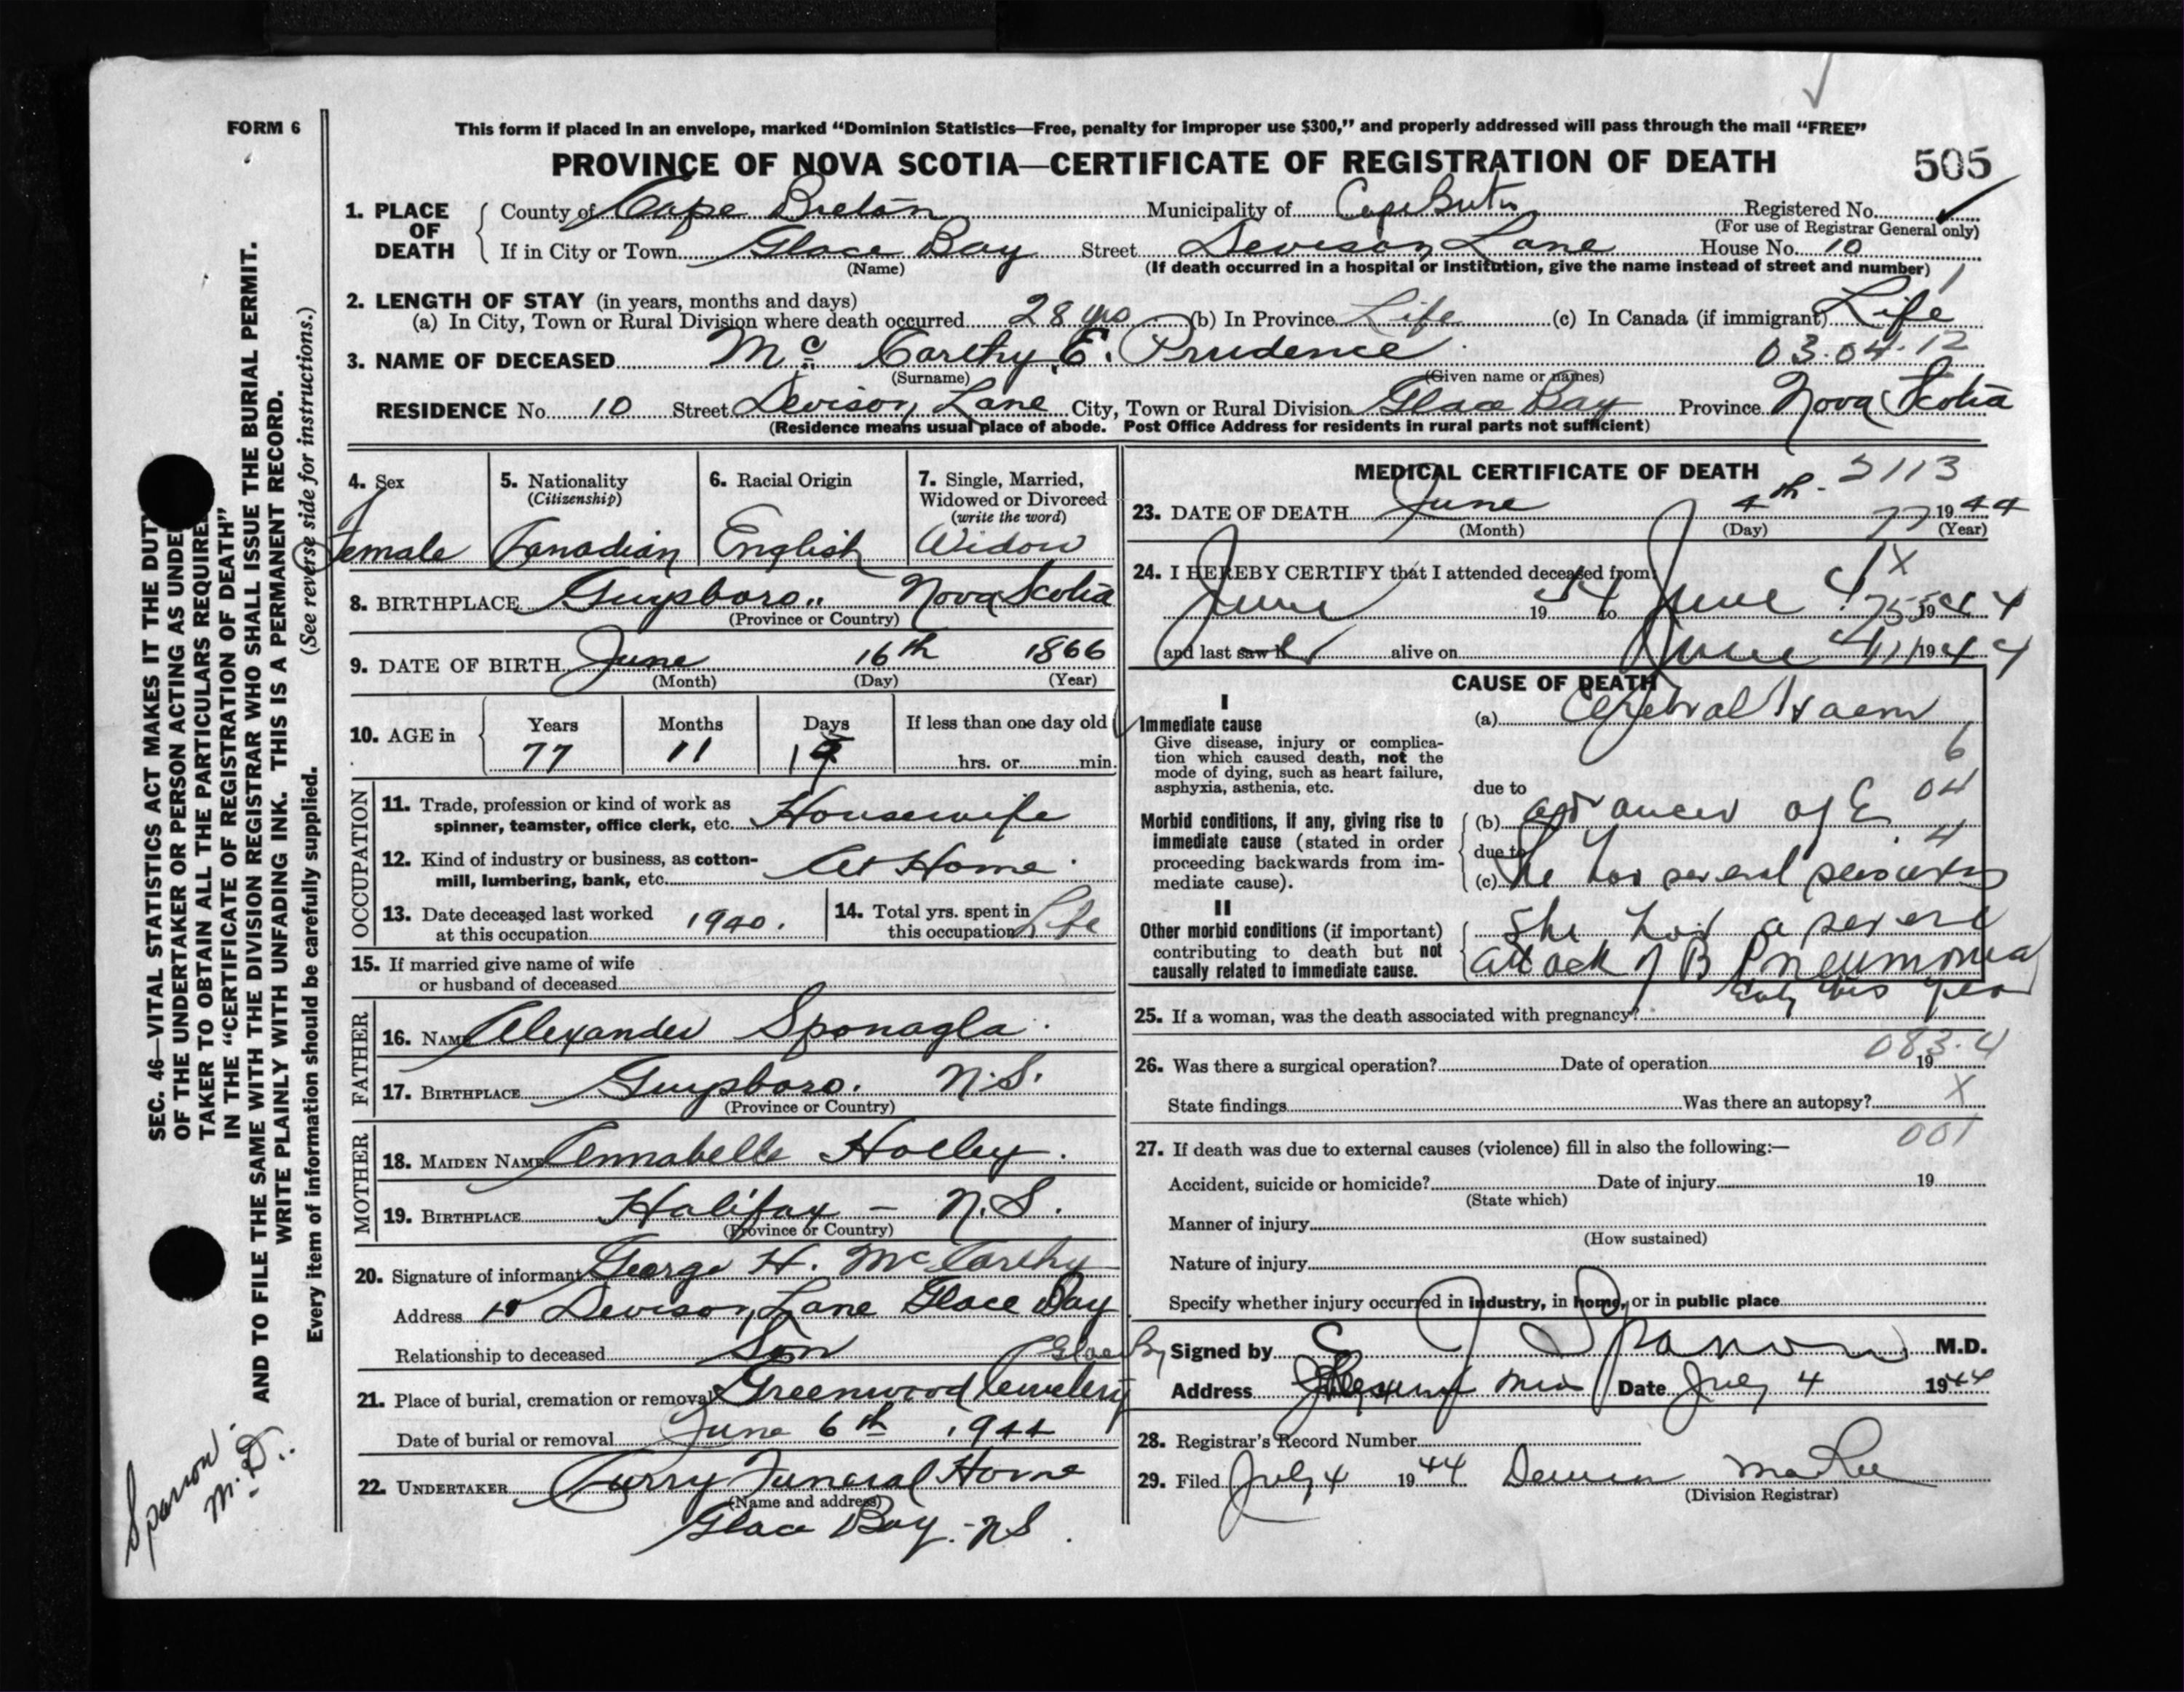 FORM 6
This form if placed in an envelope, marked “Dominion Statistics—Free, penalty for improper use $300,” and properly addressed will pass through the mail “FREE”
PROVINCE OF NOVA SCOTIA—CERTIFICATE OF REGISTRATION OF DEATH 505
1. PLACE OF DEATH County of Cape Breton Municipality of Cape Breton Registered No.
(For use of Registrar General only)
If in City or Town Glace Bay Street Devison Lane House No. 10
(Name) (If death occurred in a hospital or institution, give the name instead of street and number)
2. LENGTH OF STAY (in years, months and days)
(a) In City, Town or Rural Division where death occurred 28 yrs (b) In Province Life (c) In Canada (if immigrant) Life
3. NAME OF DECEASED Mc Carthy, E. Prudence 03.04.12
(Surname) (Given name or names)
RESIDENCE No. 10 Street Devison Lane City, Town or Rural Division Glace Bay Province Nova Scotia
(Residence means usual place of abode. Post Office Address for residents in rural parts not sufficient)
4. Sex
Female
5. Nationality
(Citizenship)
Canadian
6. Racial Origin
English
7. Single, Married,
Widowed or Divorced
(write the word)
Widow
8. BIRTHPLACE Guysboro.. Nova Scotia
(Province or Country)
9. DATE OF BIRTH June 16th 1866
(Month) (Day) (Year)
10. AGE in Years Months Days If less than one day old
77 11 19 hrs. or min.
OCCUPATION
11. Trade, profession or kind of work as
spinner, teamster, office clerk, etc. Housewife
12. Kind of industry or business, as cotton-
mill, lumbering, bank, etc. At Home
13. Date deceased last worked
at this occupation 1940.
14. Total yrs. spent in
this occupation Life
15. If married give name of wife
or husband of deceased
FATHER
16. NAME Alexander Sponagla
17. BIRTHPLACE Guysboro. N.S.
(Province or Country)
MOTHER
18. MAIDEN NAME Annabelle Holley.
19. BIRTHPLACE Halifax - N.S.
(Province or Country)
20. Signature of informant George H. McCarthy
Address 10 Devison Lane Glace Bay
Relationship to deceased Son
21. Place of burial, cremation or removal Greenwood Cemetery Glace Bay
Date of burial or removal June 6th 1944
22. UNDERTAKER Curry Funeral Home
(Name and address)
Glace Bay - NS.
MEDICAL CERTIFICATE OF DEATH 2113
23. DATE OF DEATH June 4th 1944
(Month) (Day) (Year)
77
24. I HEREBY CERTIFY that I attended deceased from
June 1944 to June 4 1944
and last saw h alive on June 4 1944
CAUSE OF DEATH
I
Immediate cause
Give disease, injury or complica-
tion which caused death, not the
mode of dying, such as heart failure,
asphyxia, asthenia, etc.
(a) Cerebral Haem
6
due to 04
Morbid conditions, if any, giving rise to
immediate cause (stated in order
proceeding backwards from im-
mediate cause).
(b) advanced age
due to 4
(c) She had several
II
Other morbid conditions (if important)
contributing to death but not
causally related to immediate cause.
She had a severe
attack of B Pneumonia
Early this year
25. If a woman, was the death associated with pregnancy?
083.4
26. Was there a surgical operation? Date of operation 19
State findings Was there an autopsy? X
001
27. If death was due to external causes (violence) fill in also the following:—
Accident, suicide or homicide? Date of injury 19
(State which)
Manner of injury
(How sustained)
Nature of injury
Specify whether injury occurred in industry, in home, or in public place
Signed by M.D.
Address Date July 4 1944
28. Registrar's Record Number
29. Filed July 4 1944
(Division Registrar)
SEC. 46—VITAL STATISTICS ACT MAKES IT THE DUTY
OF THE UNDERTAKER OR PERSON ACTING AS UNDER
TAKER TO OBTAIN ALL THE PARTICULARS REQUIRED
IN THE “CERTIFICATE OF REGISTRATION OF DEATH”
AND TO FILE THE SAME WITH THE DIVISION REGISTRAR WHO SHALL ISSUE THE BURIAL PERMIT.
WRITE PLAINLY WITH UNFADING INK. THIS IS A PERMANENT RECORD.
Every item of information should be carefully supplied. (See reverse side for instructions.)
M.D.